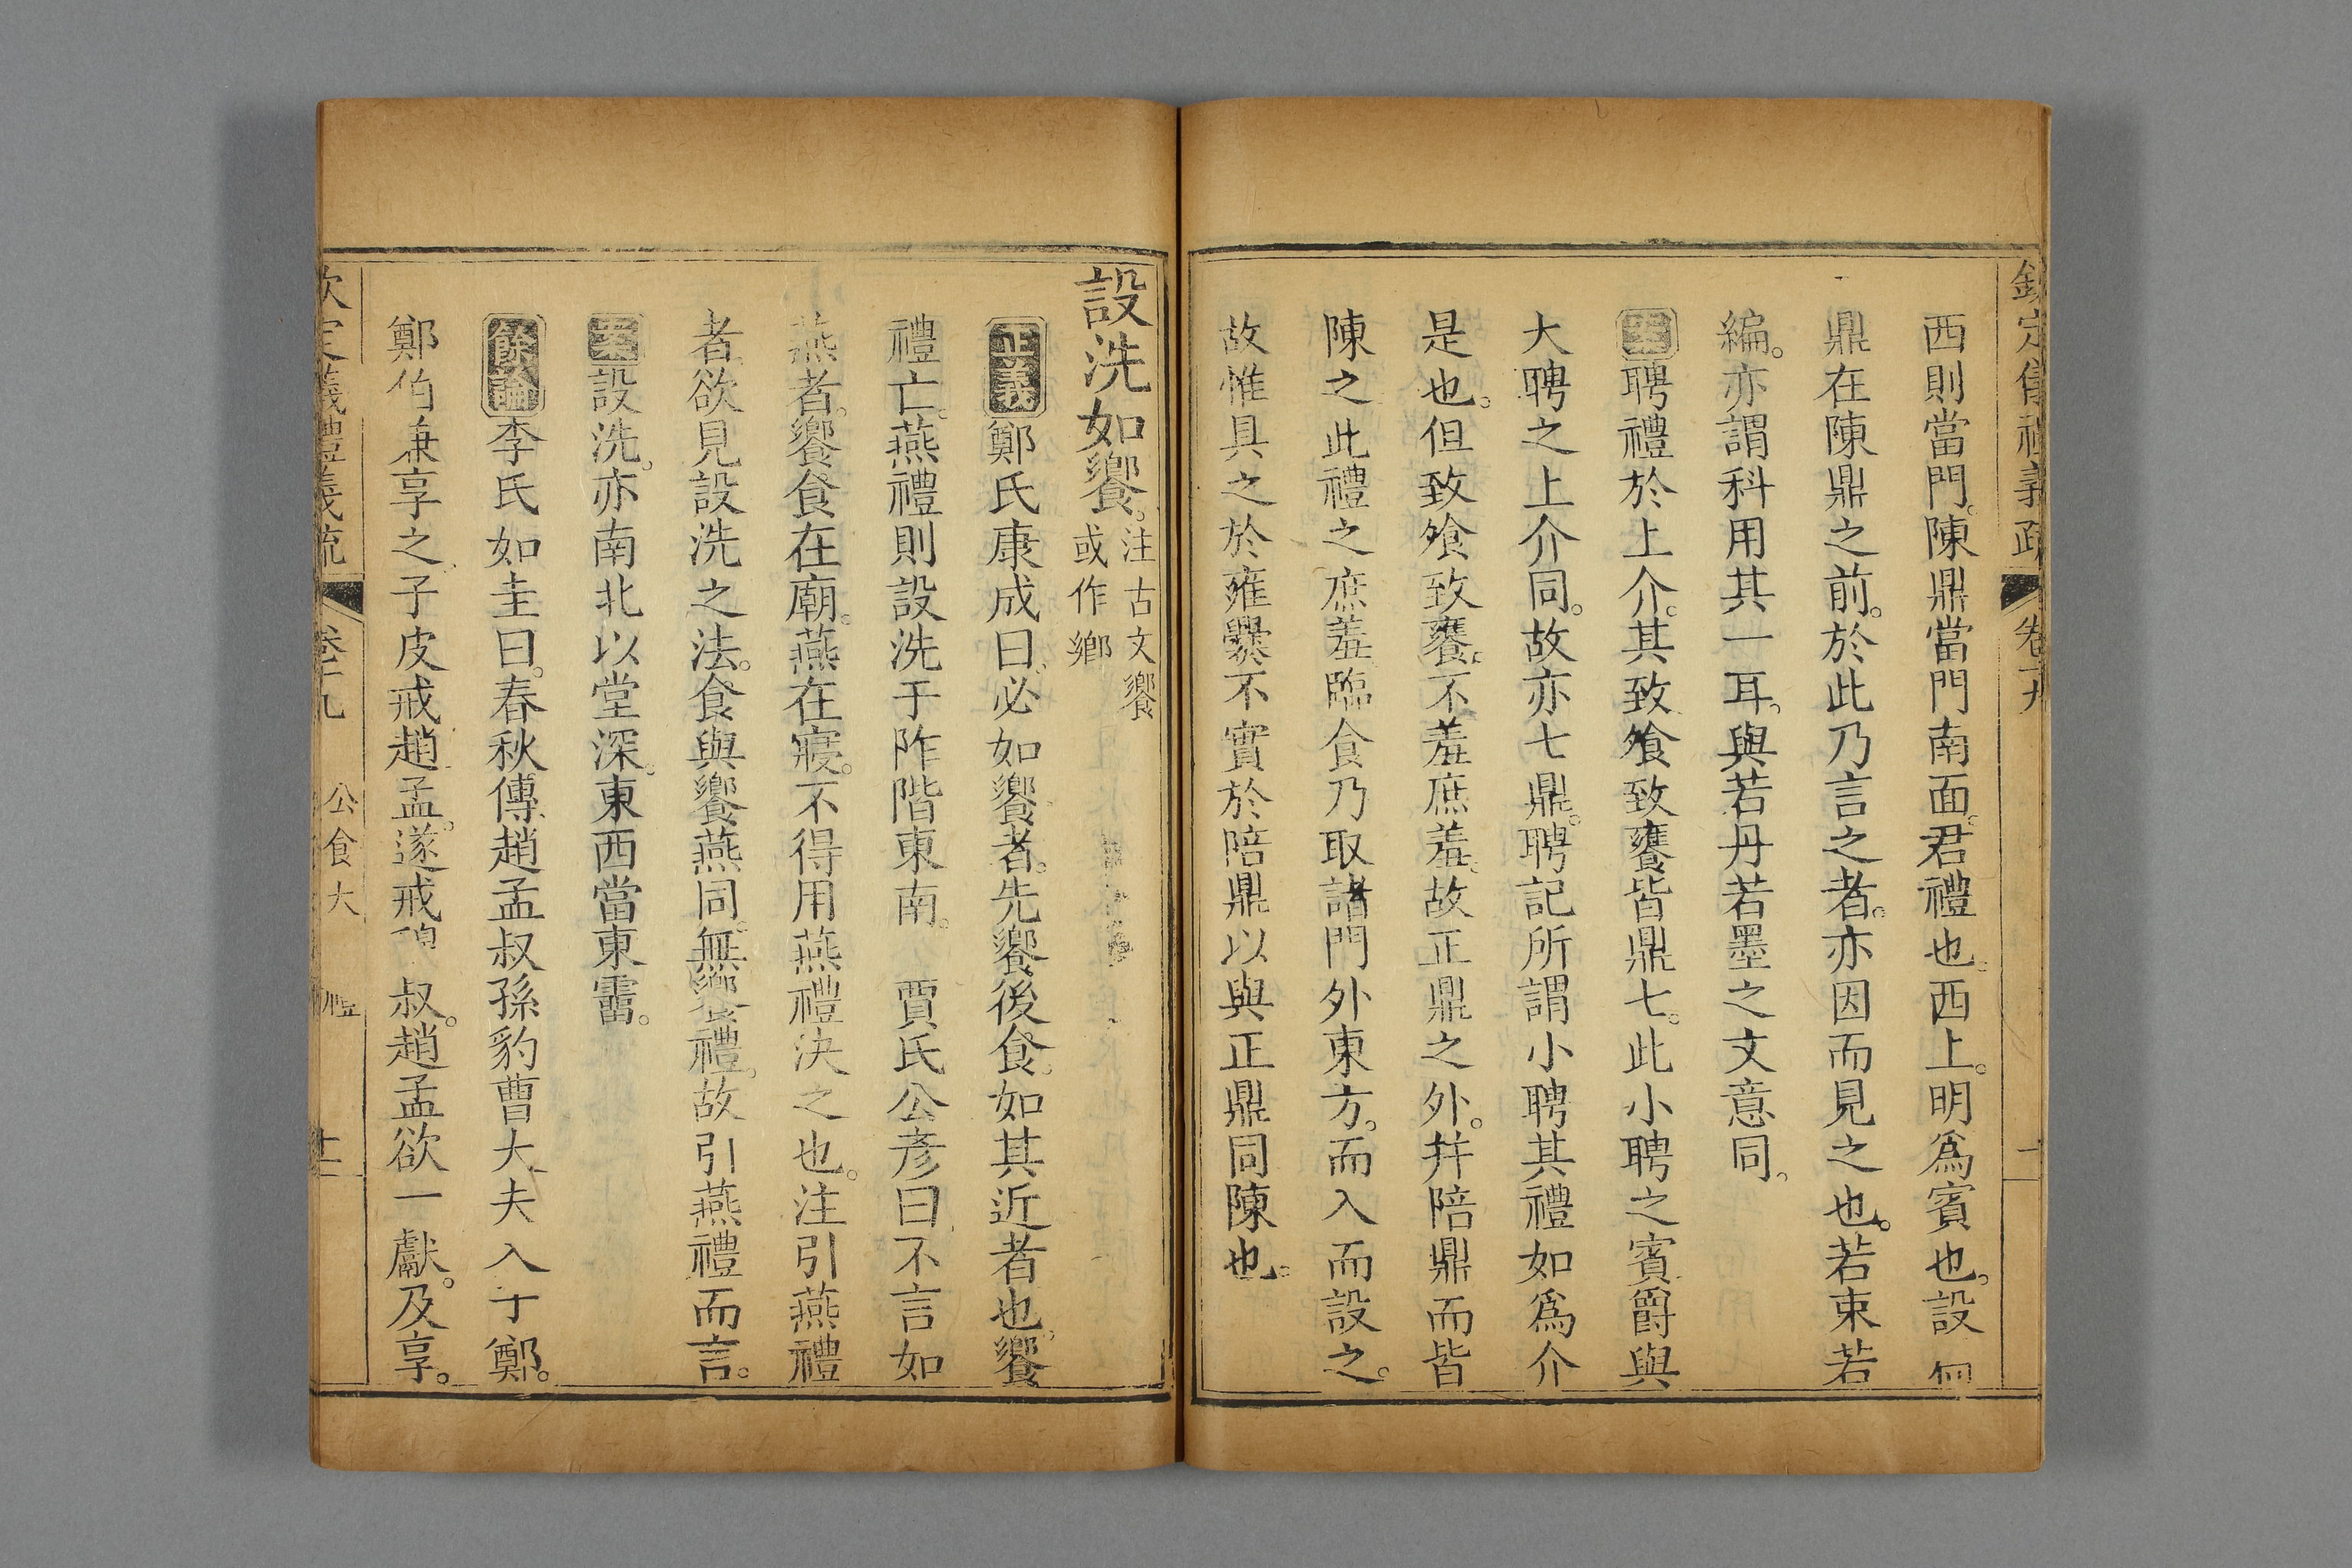 欽定儀禮義疏 卷十九
西則當門。陳鼎當門南面。君禮也。西上。明爲賓也。設
鼎在陳鼎之前。於此乃言之者。亦因而見之也。若束若
編。亦謂科用其一耳。與若丹若墨之文意同。
案聘禮於上介。其致飧致饔皆鼎七。此小聘之賓爵與
大聘之上介同。故亦七鼎。聘記所謂小聘其禮如爲介
是也。但致飧致饔。不羞庶羞。故正鼎之外。幷陪鼎而皆
陳之此禮之庶羞臨食乃取諸門外東方。而入而設之。
故惟具之於雍爨不實於陪鼎以與正鼎同陳也。
設洗如饗。注古文饗或作鄉
正義鄭氏康成曰。必如饗者。先饗後食。如其近者也。饗
禮亡。燕禮則設洗于阼階東南。 賈氏公彥曰不言如
燕者。饗食在廟。燕在寢。不得用燕禮決之也。注引燕禮
者。欲見設洗之法。食與饗燕同。無饗禮。故引燕禮而言。
案設洗。亦南北以堂深。東西當東霤。
餘論李氏如圭曰。春秋傳趙孟叔孫豹曹大夫入于鄭。
鄭伯兼享之子皮戒趙孟。遂戒叔。趙孟欲一獻。及享。
欽定儀禮義疏 卷十九 公食大 禮